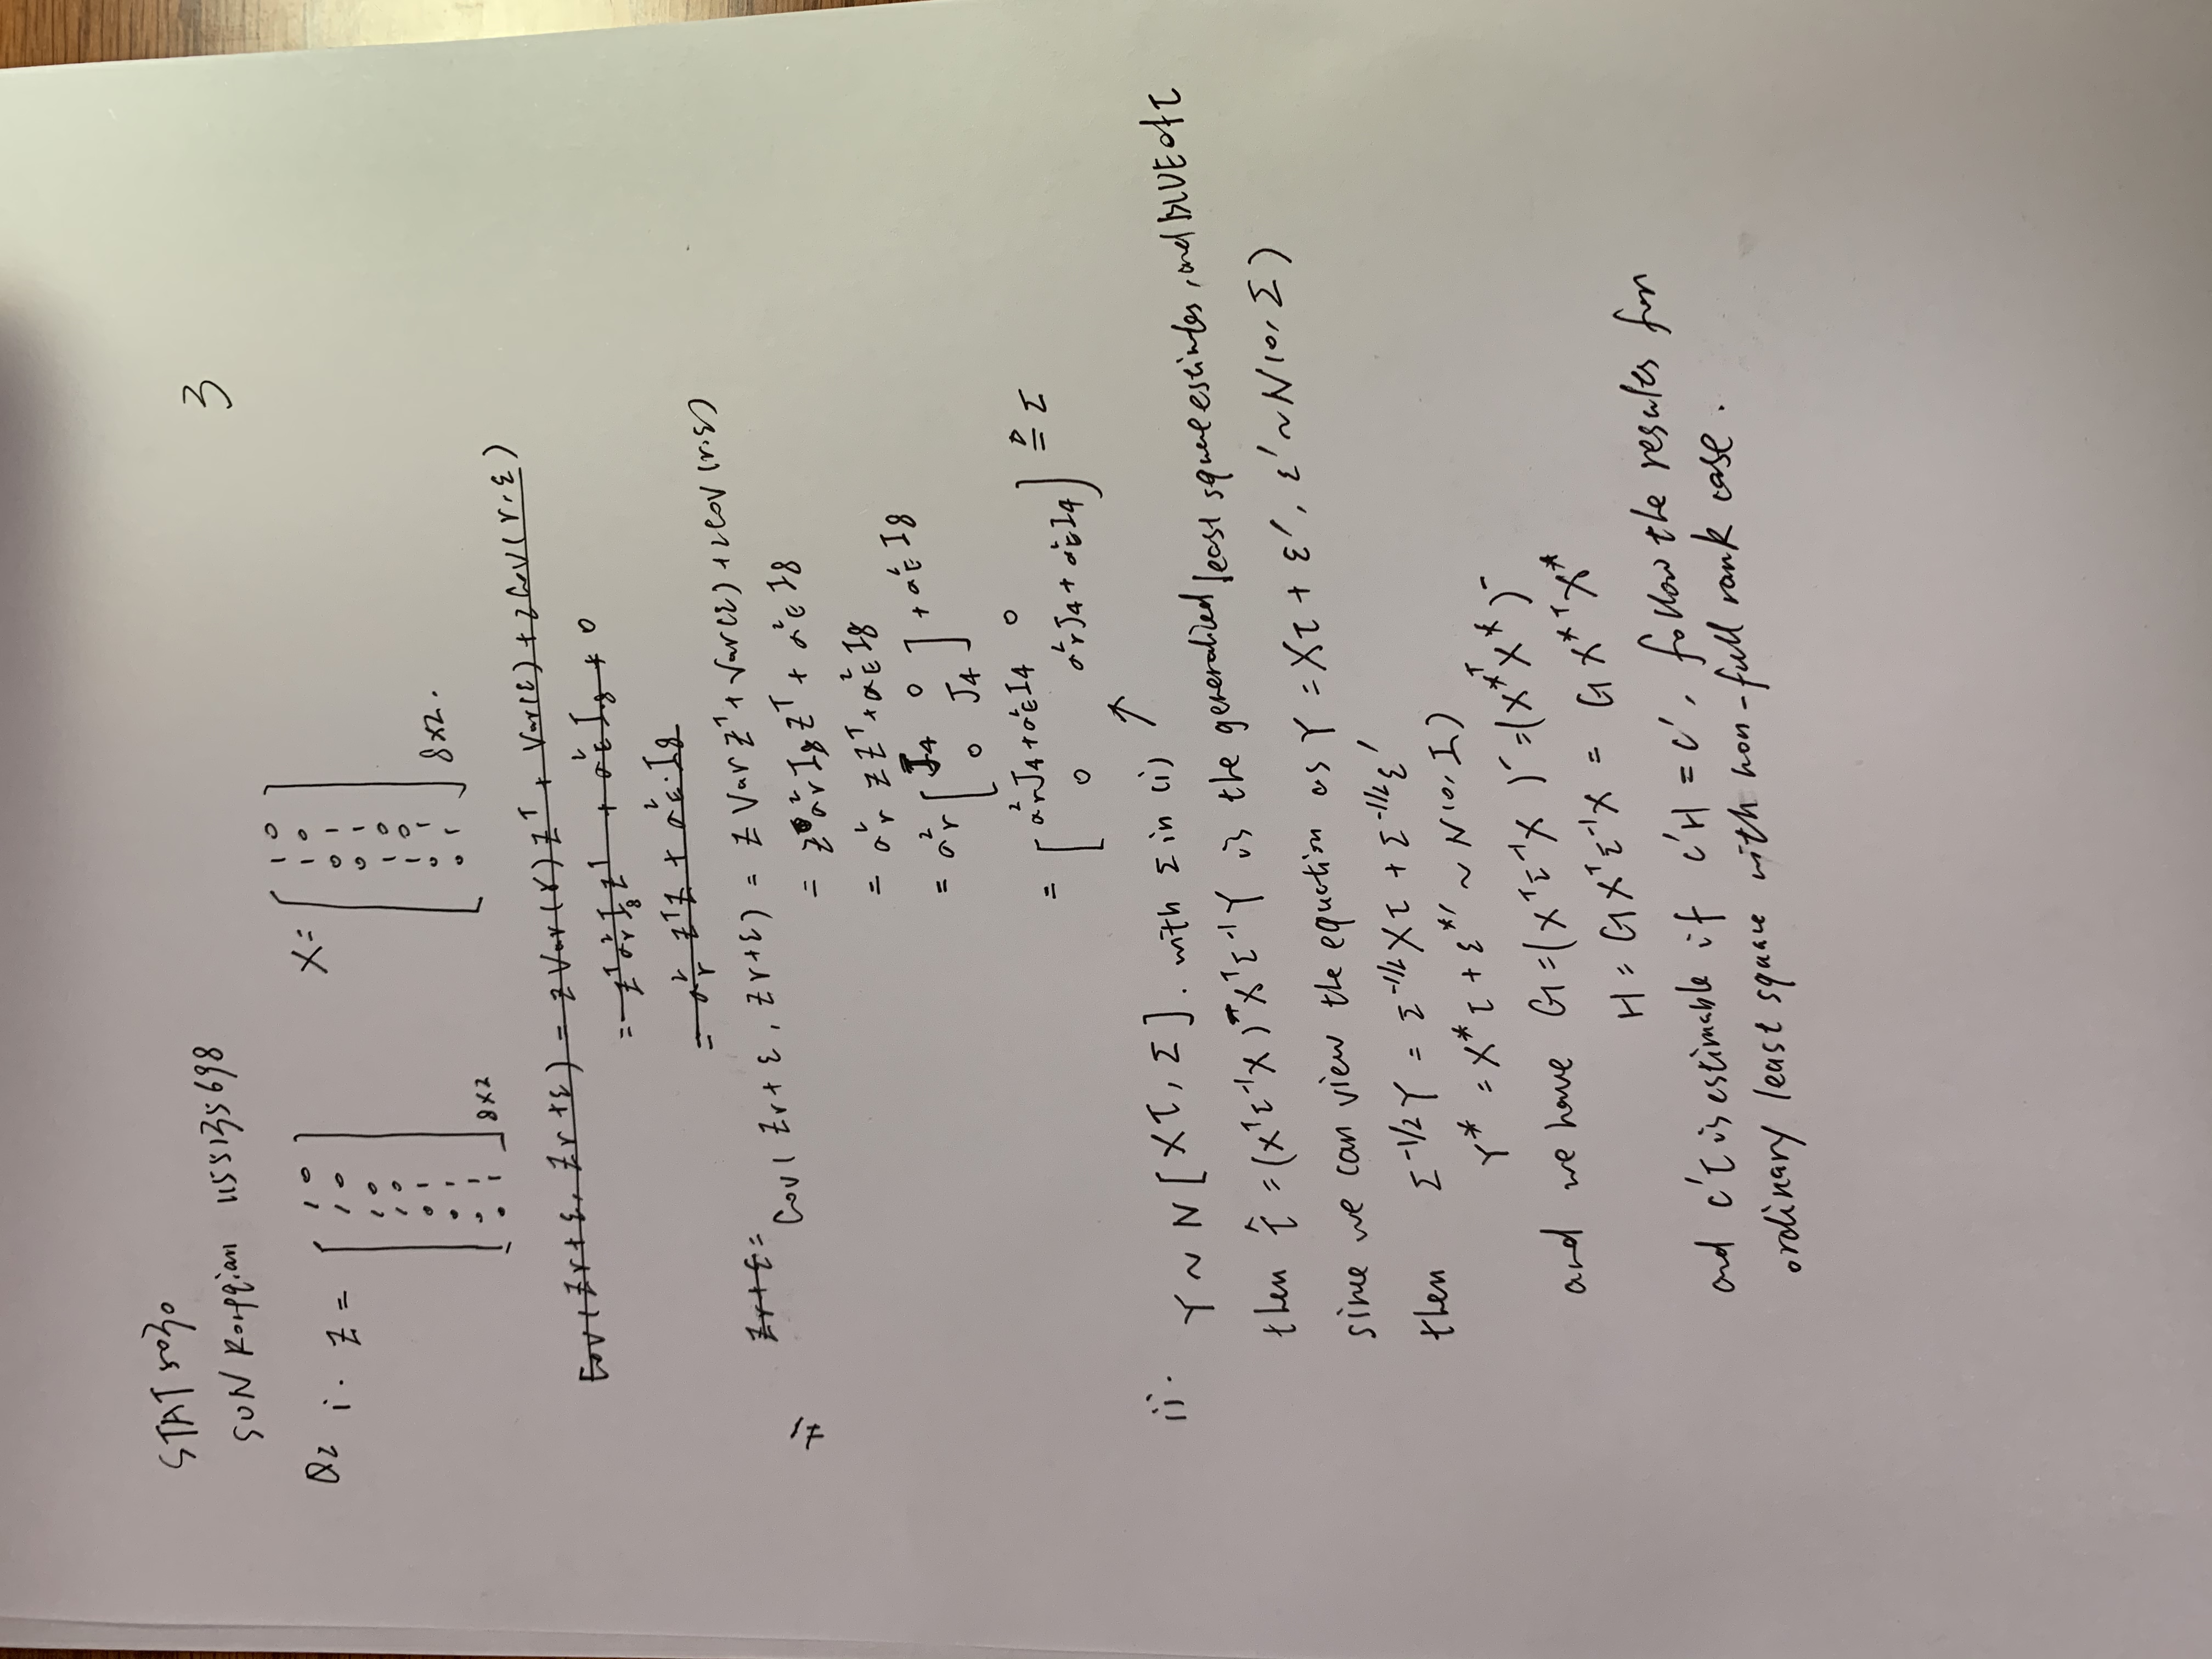 STAT 5030
3
SUN Rongqian 1155135698
Q2 i. Z = [ 1 0 X = [ 1 0
1 0 1 0
1 0 0 1
1 0 0 1
0 1 1 0
0 1 1 0
0 1 0 1
0 1 ] 8×2 0 1 ] 8×2.
Cov(Zr+ε, Zr+ε) = Z Var(r) Zᵀ + Var(ε) + 2Cov(r,ε)
= Zᵀσ²r I8 Zᵀ + σ²E I8 + 0
= σ²r ZᵀZ + σ²E·I8
Zr+ε =
ii Cov(Zr+ε, Zr+ε) = Z Var Zᵀ + Var(ε) + 2Cov(r,ε)
= Z σ²r I8 Zᵀ + σ²E I8
= σ²r ZZᵀ + σ²E I8
= σ²r [ J4 0
0 J4 ] + σ²E I8
= [ σ²rJ4 + σ²E I4 0
0 σ²rJ4 + σ²E I4 ] ≜ Σ
ii. Y ~ N[Xτ, Σ]. with Σ in (i) ↑
then τ̂ = (XᵀΣ⁻¹X)⁻XᵀΣ⁻¹Y is the generalized least square estimates, and BLUE of τ
since we can view the equation as Y = Xτ + ε', ε' ~ N(0, Σ)
then Σ^-1/2 Y = Σ^-1/2 Xτ + Σ^-1/2 ε'
Y* = X*τ + ε*' ~ N(0, I)
and we have G = (XᵀΣ⁻¹X)⁻ = (X*ᵀX*)⁻
H = GXᵀΣ⁻¹X = GX*ᵀX*
and c'τ is estimable if c'H = c', follow the results for
ordinary least square with non-full rank case.